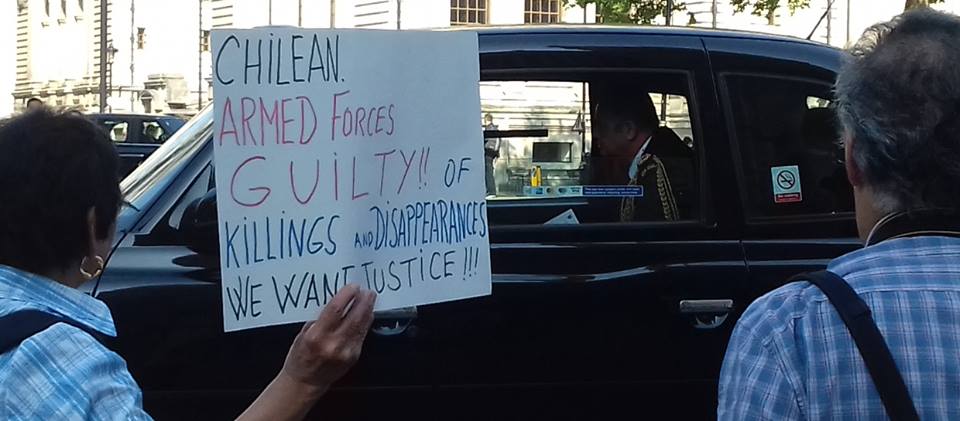 CHILEAN.
ARMED FORCES
GUILTY!! OF
KILLINGS AND DISAPPEARANCES
WE WANT JUSTICE!!!